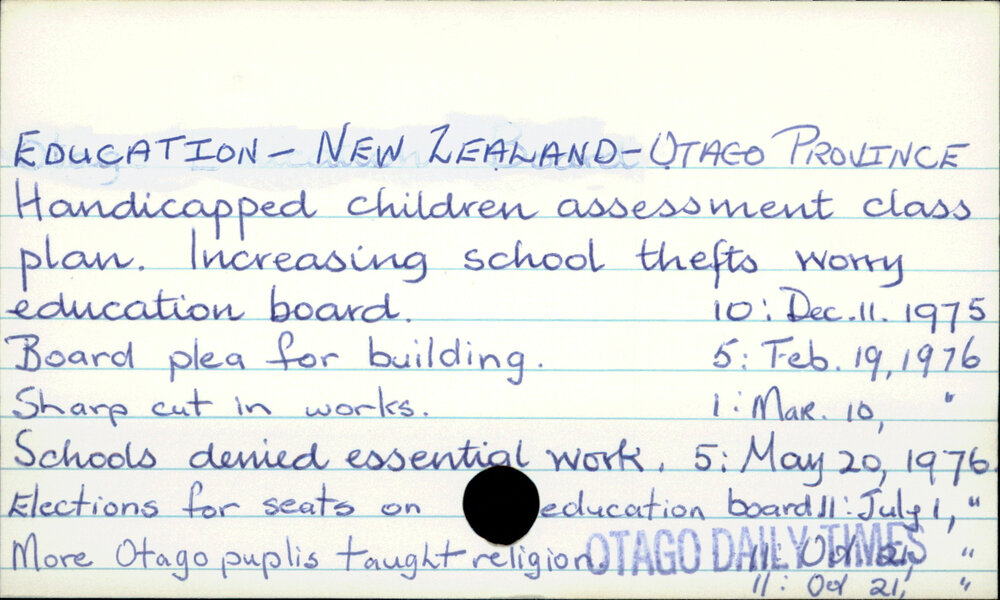 EDUCATION - NEW ZEALAND - OTAGO PROVINCE
Handicapped children assessment class
plan. Increasing school thefts worry
education board. 10: Dec. 11. 1975
Board plea for building. 5: Feb. 19, 1976
Sharp cut in works. 1: MAR. 10, "
Schools denied essential work. 5: May 20, 1976
Elections for seats on education board 11: July 1, "
More Otago puplis taught religion. 11: Oct 21, "
OTAGO DAILY TIMES
11: Oct 21, "